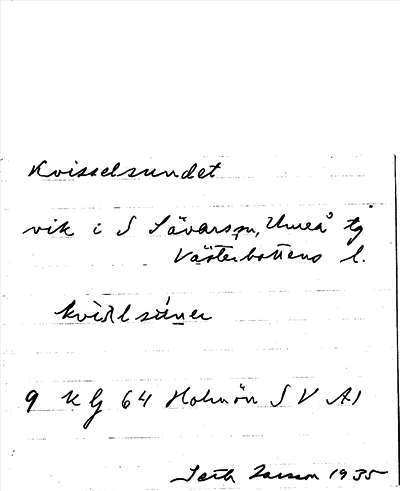 Kvisselsundet
vik i S Sävarsn, Umeå tg
Västerbottens l.
9 K G 64 Holmön S V A1
Seth Larsson 1935